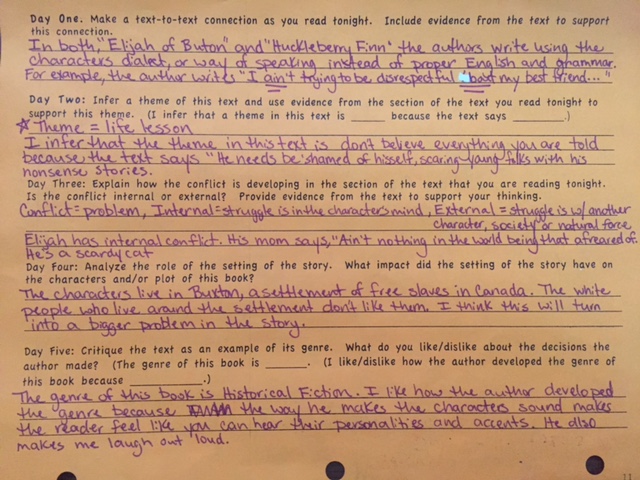 Day One. Make a text-to-text connection as you read tonight. Include evidence from the text to support
this connection.
In both, "Elijah of Buxton" and "Huckleberry Finn" the authors write using the
characters dialect, or way of speaking instead of proper English and grammar.
For example, the author writes "I ain't trying to be disrespectful 'bout my best friend..."
Day Two: Infer a theme of this text and use evidence from the section of the text you read tonight to
support this theme. (I infer that a theme in this text is ______ because the text says ________.)
☆ Theme = life lesson
I infer that the theme in this text is don't believe everything you are told
because the text says "He needs be shamed of hisself, scaring young folks with his
nonsense stories.
Day Three: Explain how the conflict is developing in the section of the text that you are reading tonight.
Is the conflict internal or external? Provide evidence from the text to support your thinking.
Conflict = problem, Internal = struggle is in the characters mind, External = struggle is w/ another
character, society or natural force
Elijah has internal conflict. His mom says, "Ain't nothing in the world being that afreared of.
He's a scardy cat
Day Four: Analyze the role of the setting of the story. What impact did the setting of the story have on
the characters and/or plot of this book?
The characters live in Buxton, a settlement of free slaves in Canada. The white
people who live around the settlement don't like them. I think this will turn
into a bigger problem in the story.
Day Five: Critique the text as an example of its genre. What do you like/dislike about the decisions the
author made? (The genre of this book is ______. (I like/dislike how the author developed the genre of
this book because __________.)
The genre of this book is Historical Fiction. I like how the author developed
the genre because the way he makes the characters sound makes
the reader feel like you can hear their personalities and accents. He also
makes me laugh out loud.
11